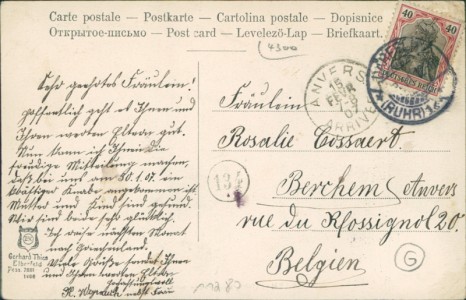 Carte postale – Postkarte – Cartolina postale – Dopisnice
Открытое-письмо – Post card – Levelező-Lap – Briefkaart.
4300
Sehr geehrtes Fräulein!
Hoffentlich geht es Ihnen und
Ihren werten Eltern gut.
Nun kann ich Ihnen die
freudige Mitteilung machen,
daß bei uns am 30.1.07 ein
kräftiger Knabe angekommen ist
Mutter und Kind sind gesund
Wir sind beide sehr glücklich.
Ich reise nächsten Monat
nach Griechenland.
Viele Grüße sendet Ihnen
und Ihren werten Eltern
nebst Frau
Fräulein
Rosalie Cossaert
Berchem Anvers
rue du Rossignol 20.
Belgien
ANVERS
ARRIVÉE
40 40
DEUTSCHES REICH
(RUHR)
134
G
Gerhard Thien
Elberfeld